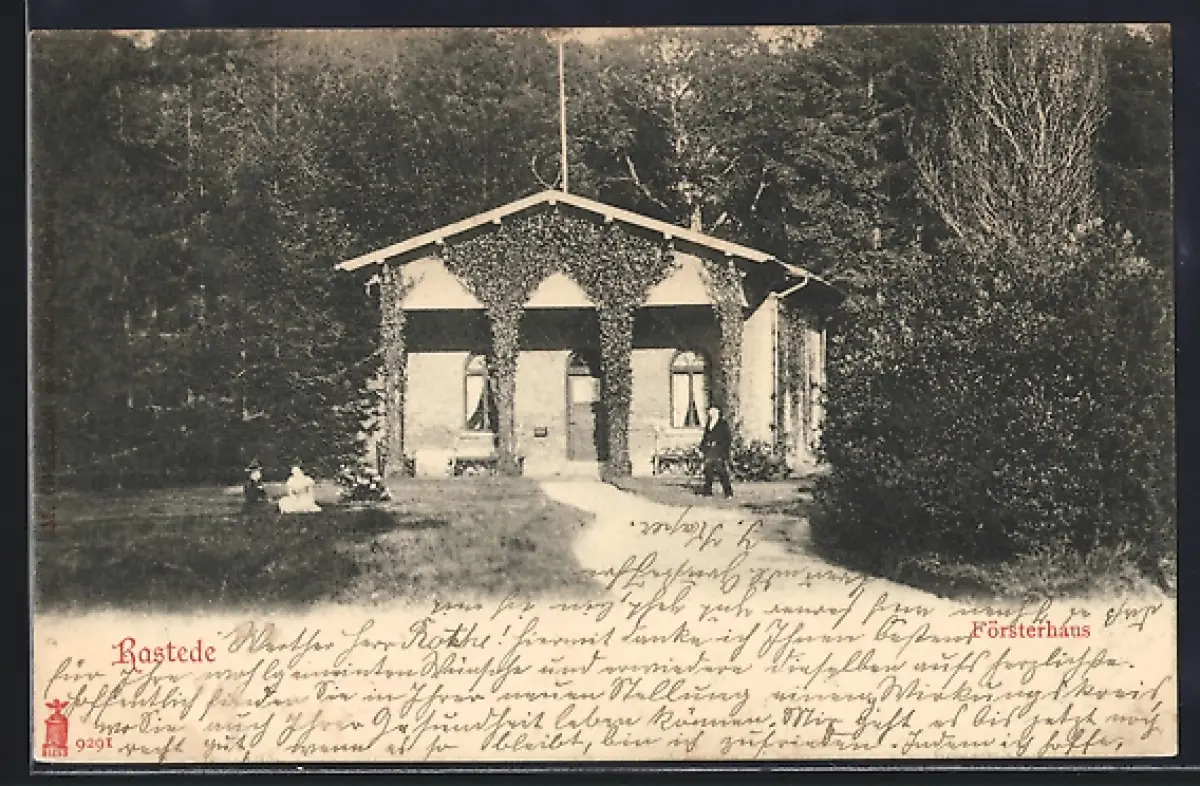 Rastede
Försterhaus
Werther Herr Kothe! Hiermit danke ich Ihnen bestens
für Ihre wohlgemeinten Wünsche und erwiedere dieselben aufs herzlichste.
Hoffentlich finden Sie in Ihrer neuen Stellung einen Wirkungskreis,
wo Sie auch Ihrer Gesundheit leben können. Mir geht es bis jetzt noch
recht gut, wenn es so bleibt, bin ich zufrieden. Indem ich hoffe,
9291